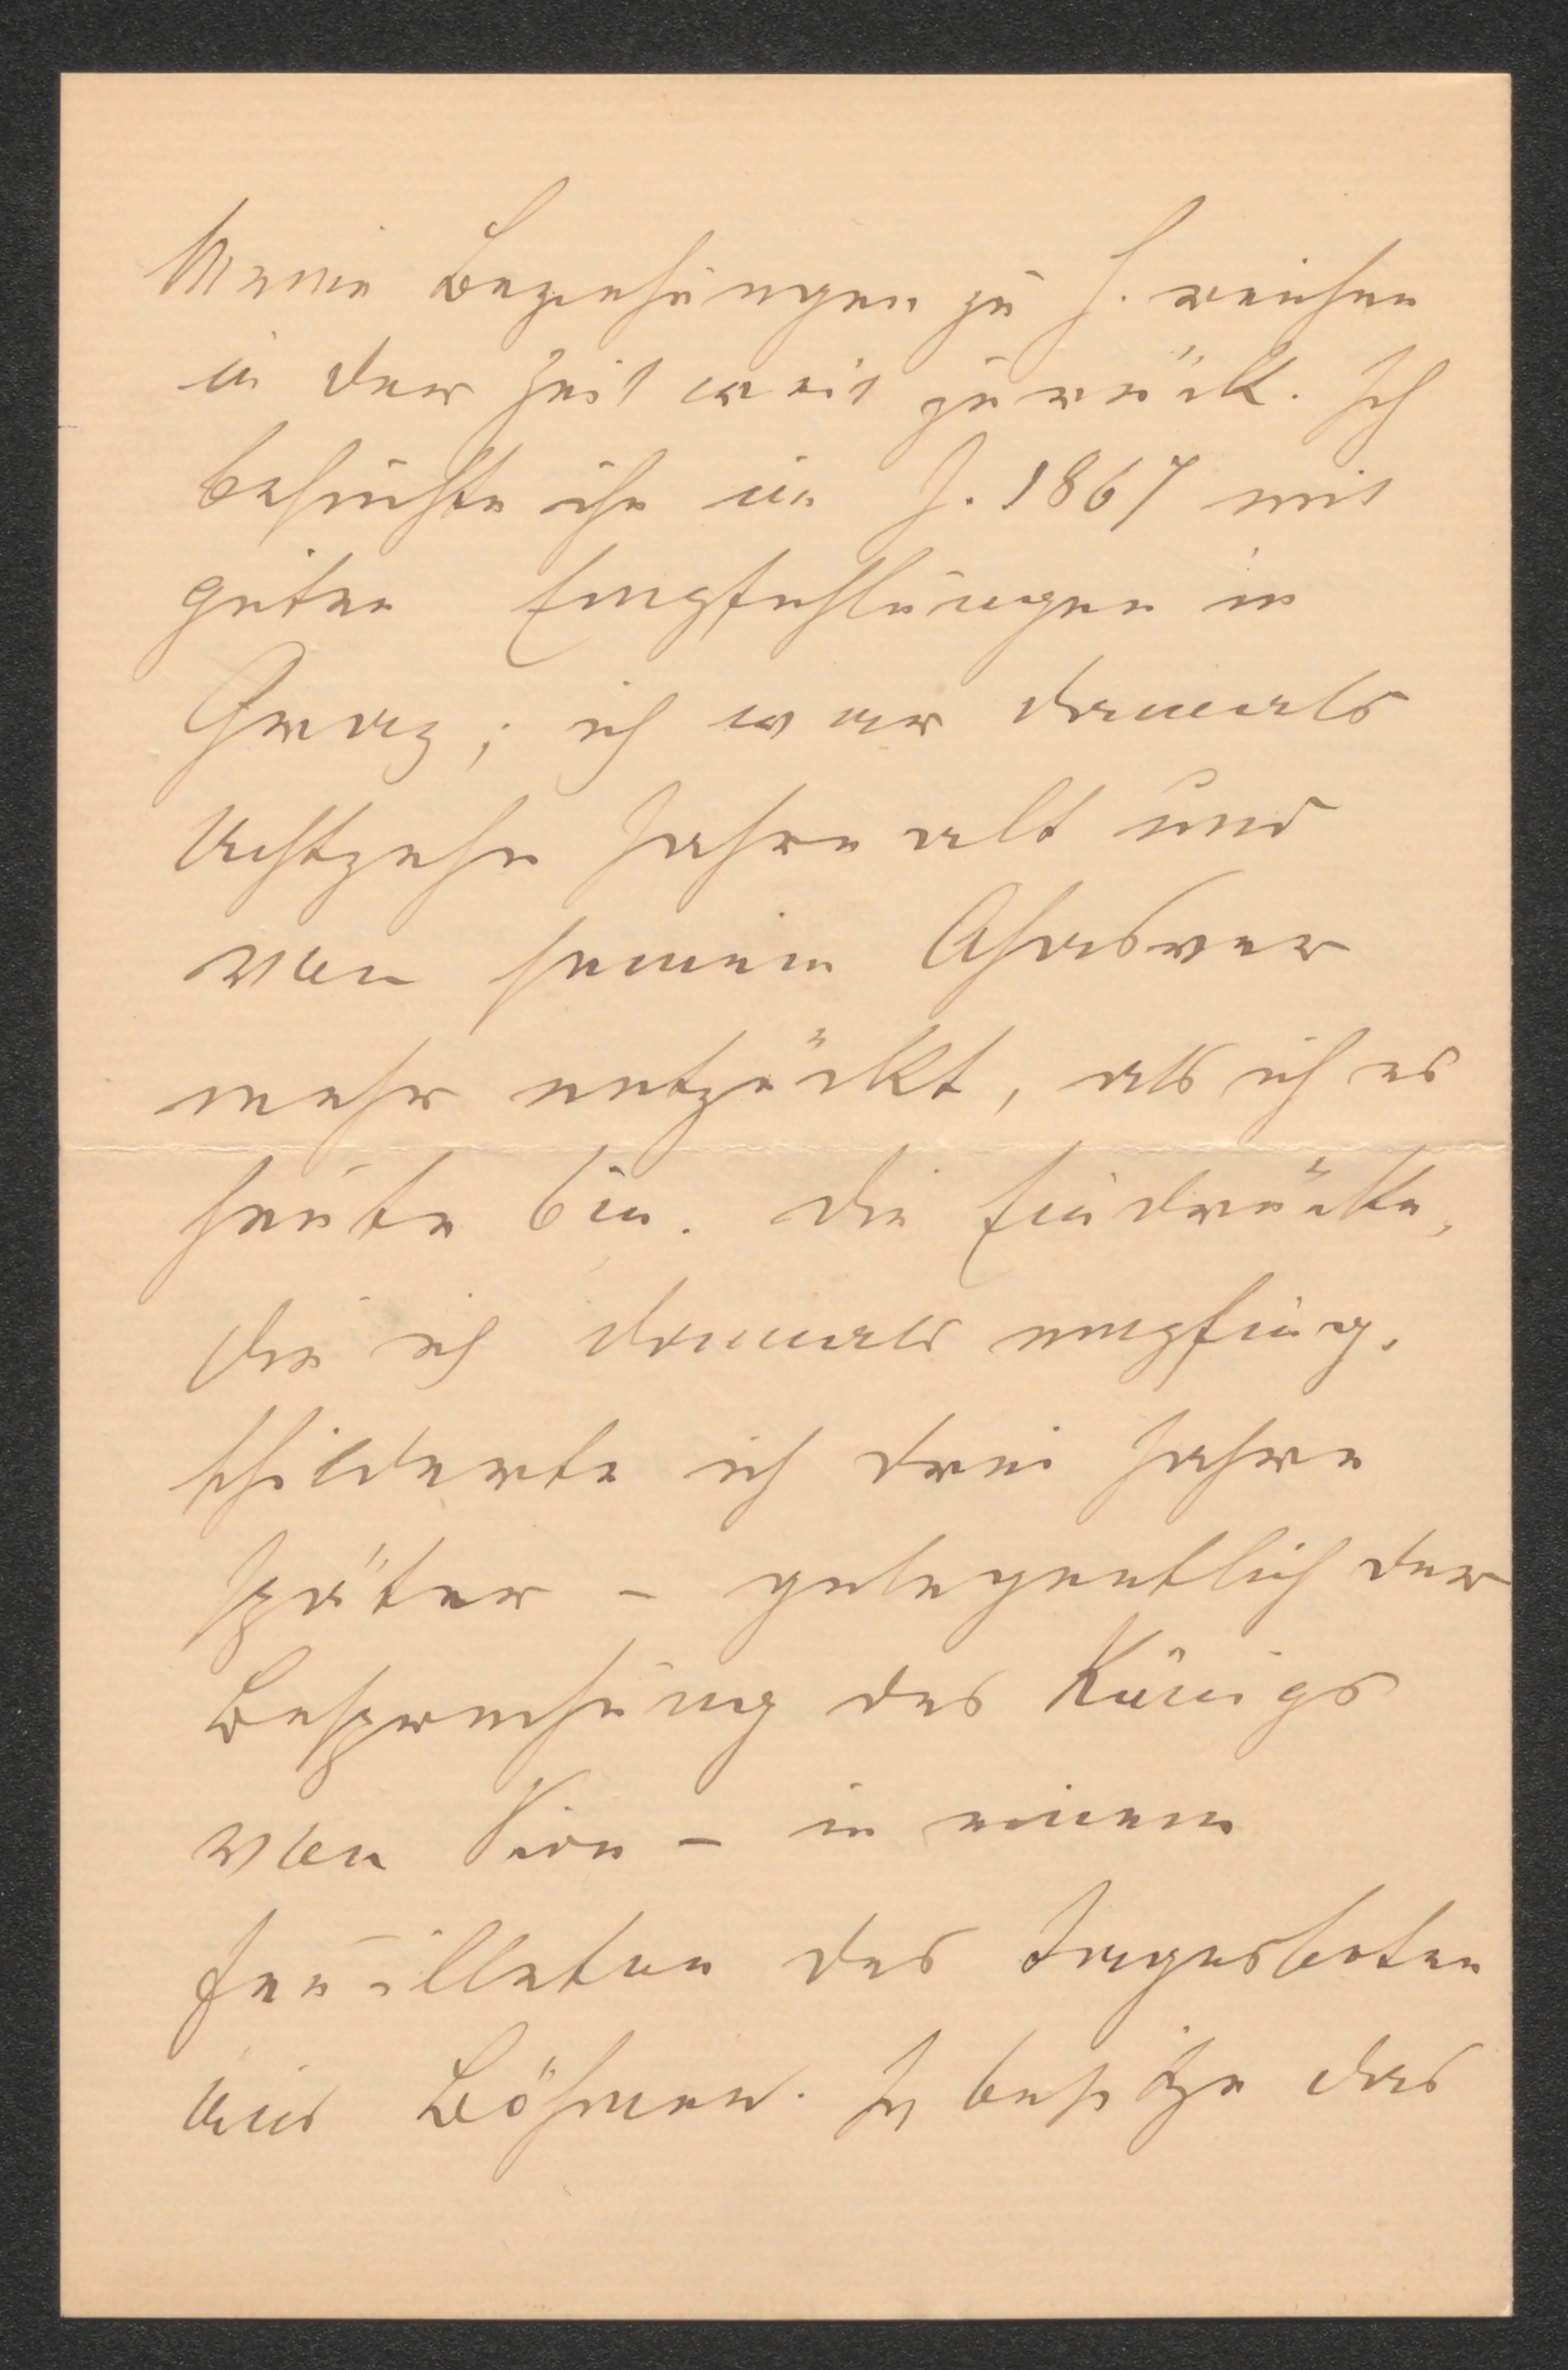 Meine Beziehungen zu H. reichen
in der Zeit weit zurück. Ich
besuchte ihn im J. 1867 mit
guten Empfehlungen in
Graz; ich war damals
Achtzehn Jahre alt und
von seinem Ahasver
mehr entzückt, als ich es
heute bin. Die Eindrücke,
die ich damals empfing,
schilderte ich drei Jahre
später – gelegentlich der
Besprechung des Königs
von Sion – in einem
Feuilleton des Tagesboten
aus Böhmen. Ich besitze das